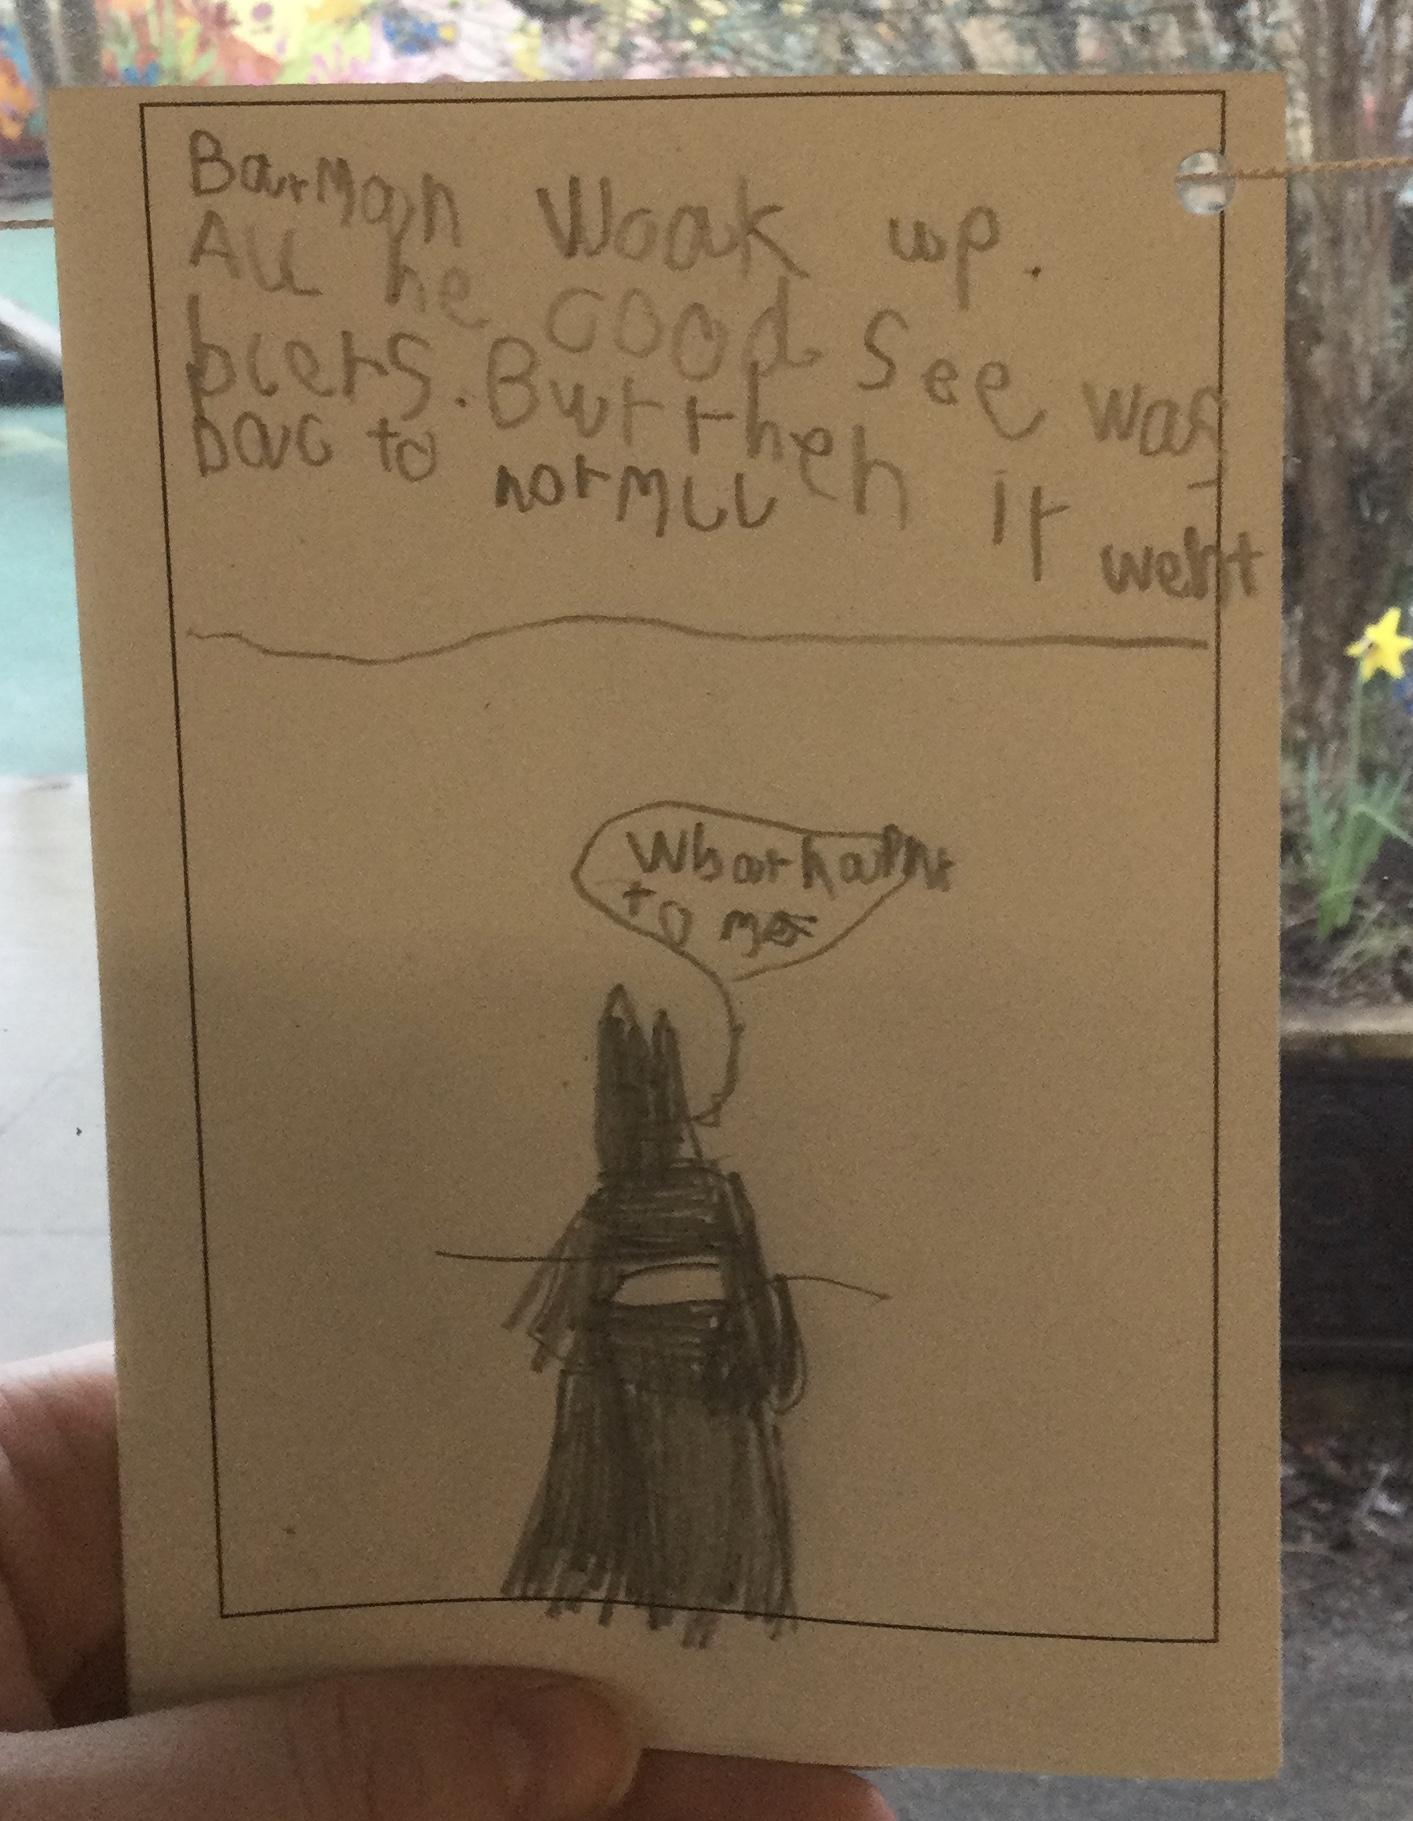 Batman Woak up.
All he cood see was
blers. But then it went
bac to normll
What hapnt
to me